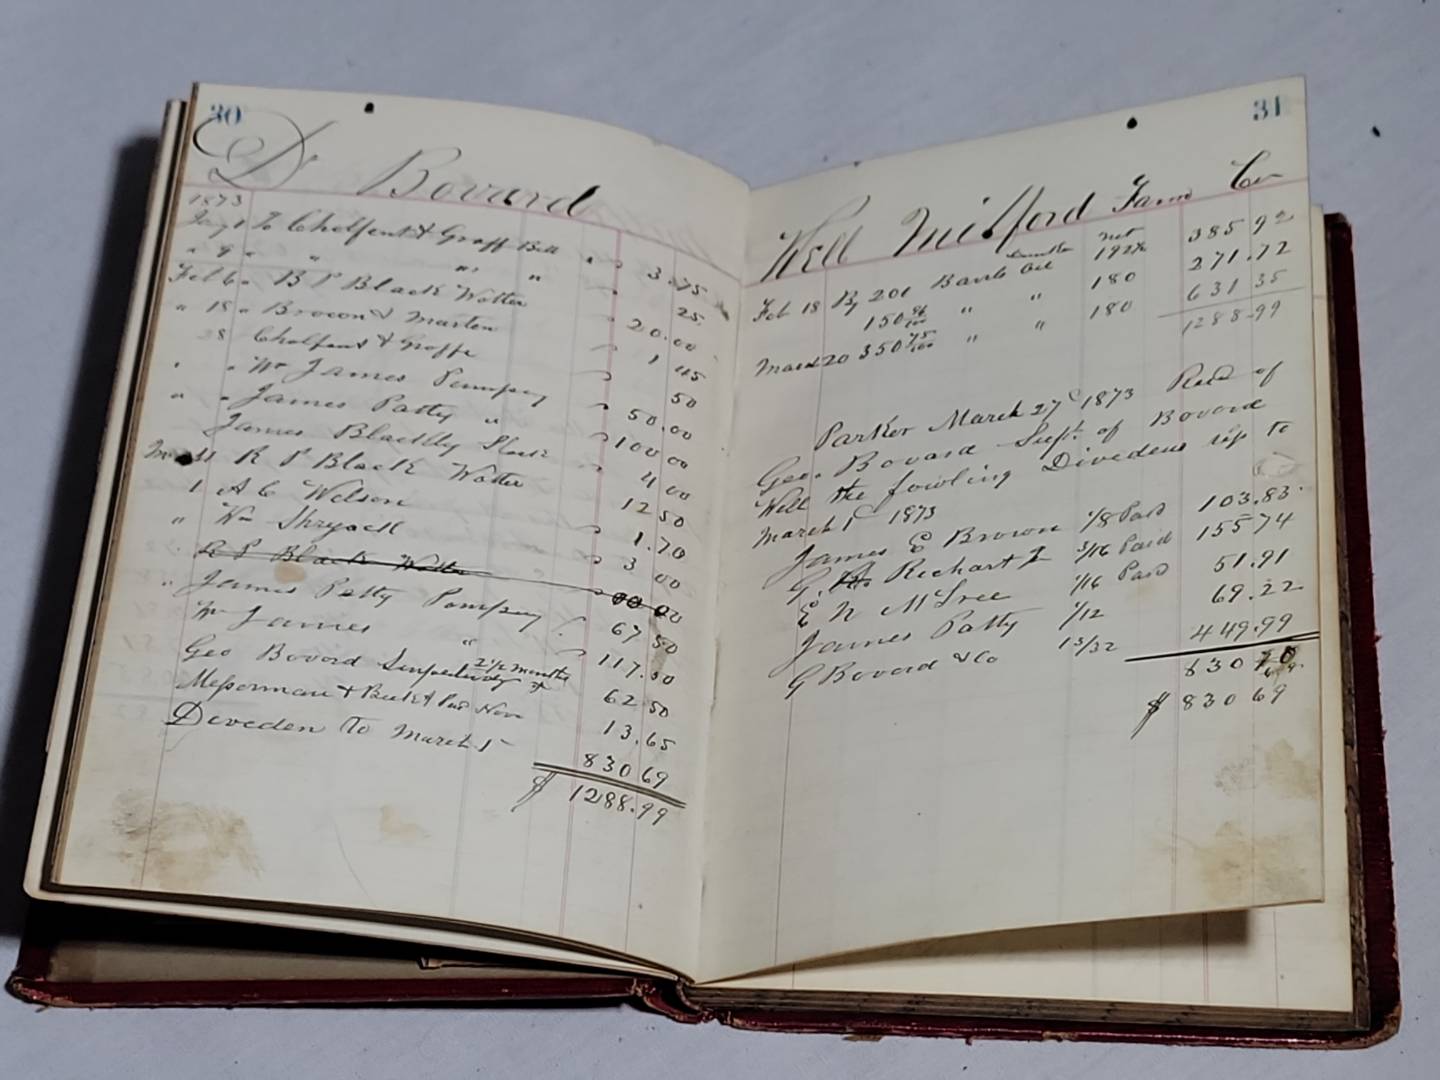 30
Dr Bovard
1873
Jany 1 To Chalfent & Graff Bill " 3.75
" 9 " " " " " 25
Feb 6 " B P Black Watter 20.00
" 18 " Brown & Marten 1 45
28 Chalfant & Groffe 50
" " Wm James Pumpey 50.00
" " James Patty " 100 00
James Blackley Slack 4 00
31 R P Black Watter 12 50
1 A C Welson 1.70
" Wm Shryack 3 00
R P Black Watter 00 00
" James Patty Pompey 67 50
Wm James " 117.50
Geo Bovord 2 1/2 months 62 50
Messorman & Paid 13.65
Diveden To March 1st 830 69
$ 1288.99
31
Well Milford Farm Cr
Feb 18 By 201 Barls Oil net 192 1/2 385 92
150 96/100 " " 180 271.72
March 20 350 75/100 " " 180 631 35
1288.99
Parker March 27th 1873 Recd of
Geo. Bovard Supt. of Bovord
Well the fowling Dividens up to
March 1st 1873
James E Brown 1/8 Paid 103.83
G. Rechart 3/16 Paid 155 74
E N McGree 1/16 Paid 51.91
James Patty 1/12 69.22
G Bovord & Co 13/32 449.99
830 70
$ 830 69